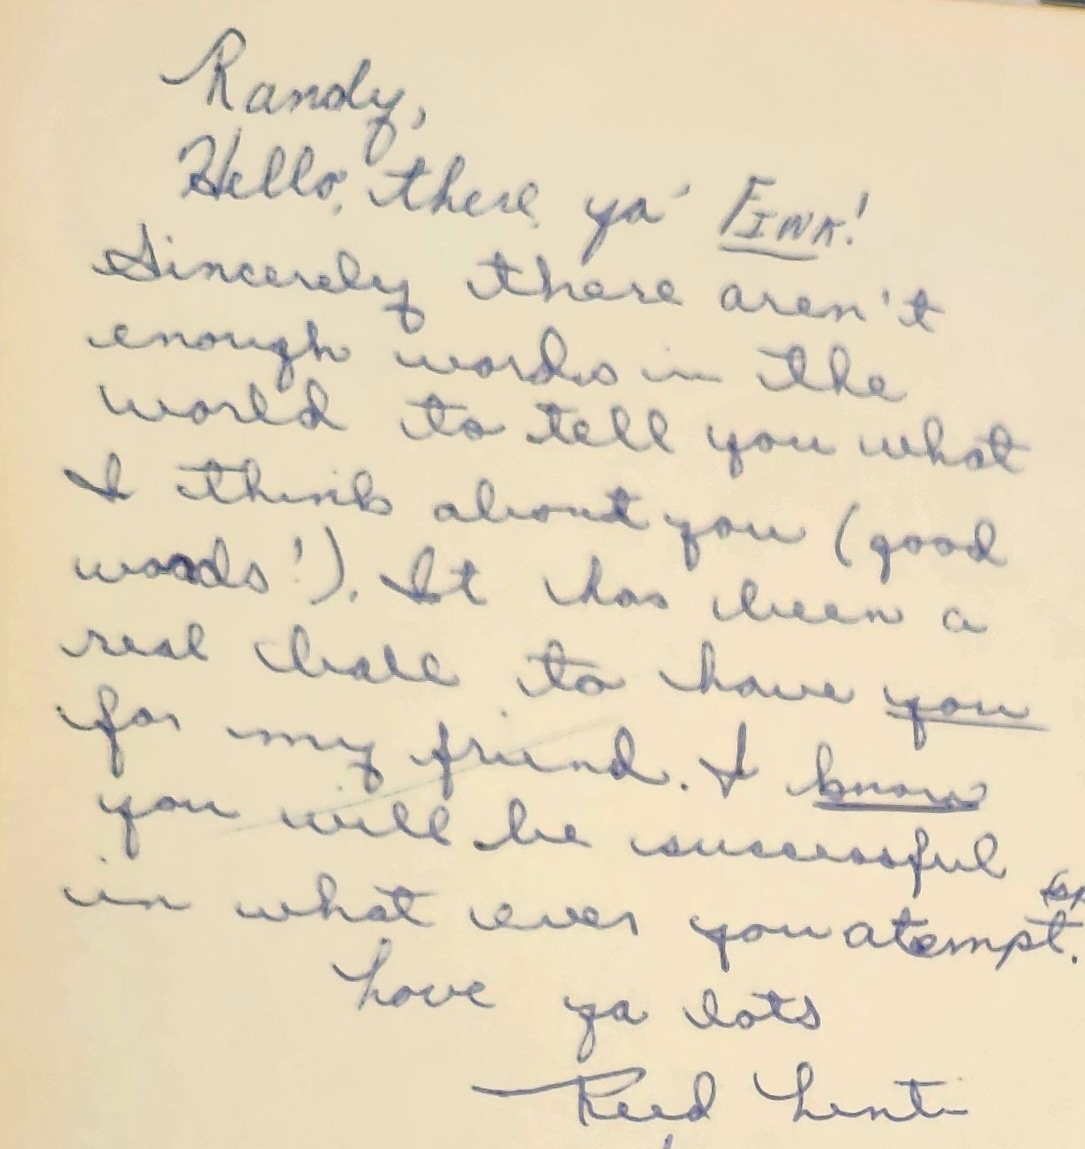 Randy,
Hello, there ya' FINK!
Sincerely there aren't
enough words in the
world to tell you what
I think about you (good
words!). It has been a
real ball to have you
for my friend. I know
you will be successful
(sp
in what ever you atempt.
Love ya lots
Reed